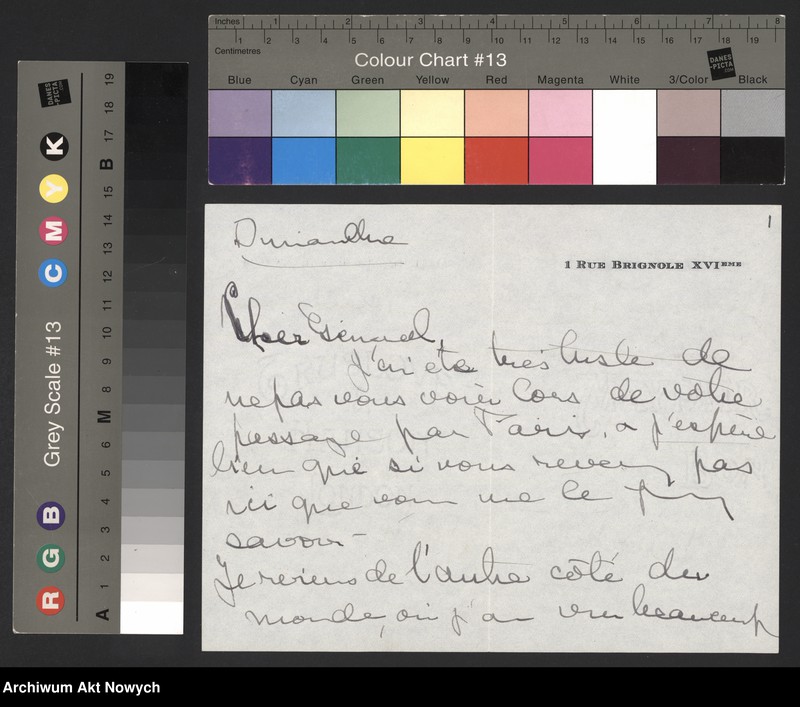 Inches 1 2 3 4 5 6 7 8
Centimetres 1 2 3 4 5 6 7 8 9 10 11 12 13 14 15 16 17 18 19
Colour Chart #13
DANES-PICTA.COM
Blue Cyan Green Yellow Red Magenta White 3/Color Black
DANES-PICTA.COM
Grey Scale #13
R G B C M Y K
A 1 2 3 4 5 6 M 8 9 10 11 12 13 14 15 B 17 18 19
1
Dimanche
1 RUE BRIGNOLE XVIEME
Cher Général,
j'ai été très triste de
ne pas vous voir lors de votre
passage par Paris, & j'espère
bien que si vous revenez par
ici que vous me le
savoir -
Je reviens de l'autre côté du
monde, où j'ai vu beaucoup
Archiwum Akt Nowych